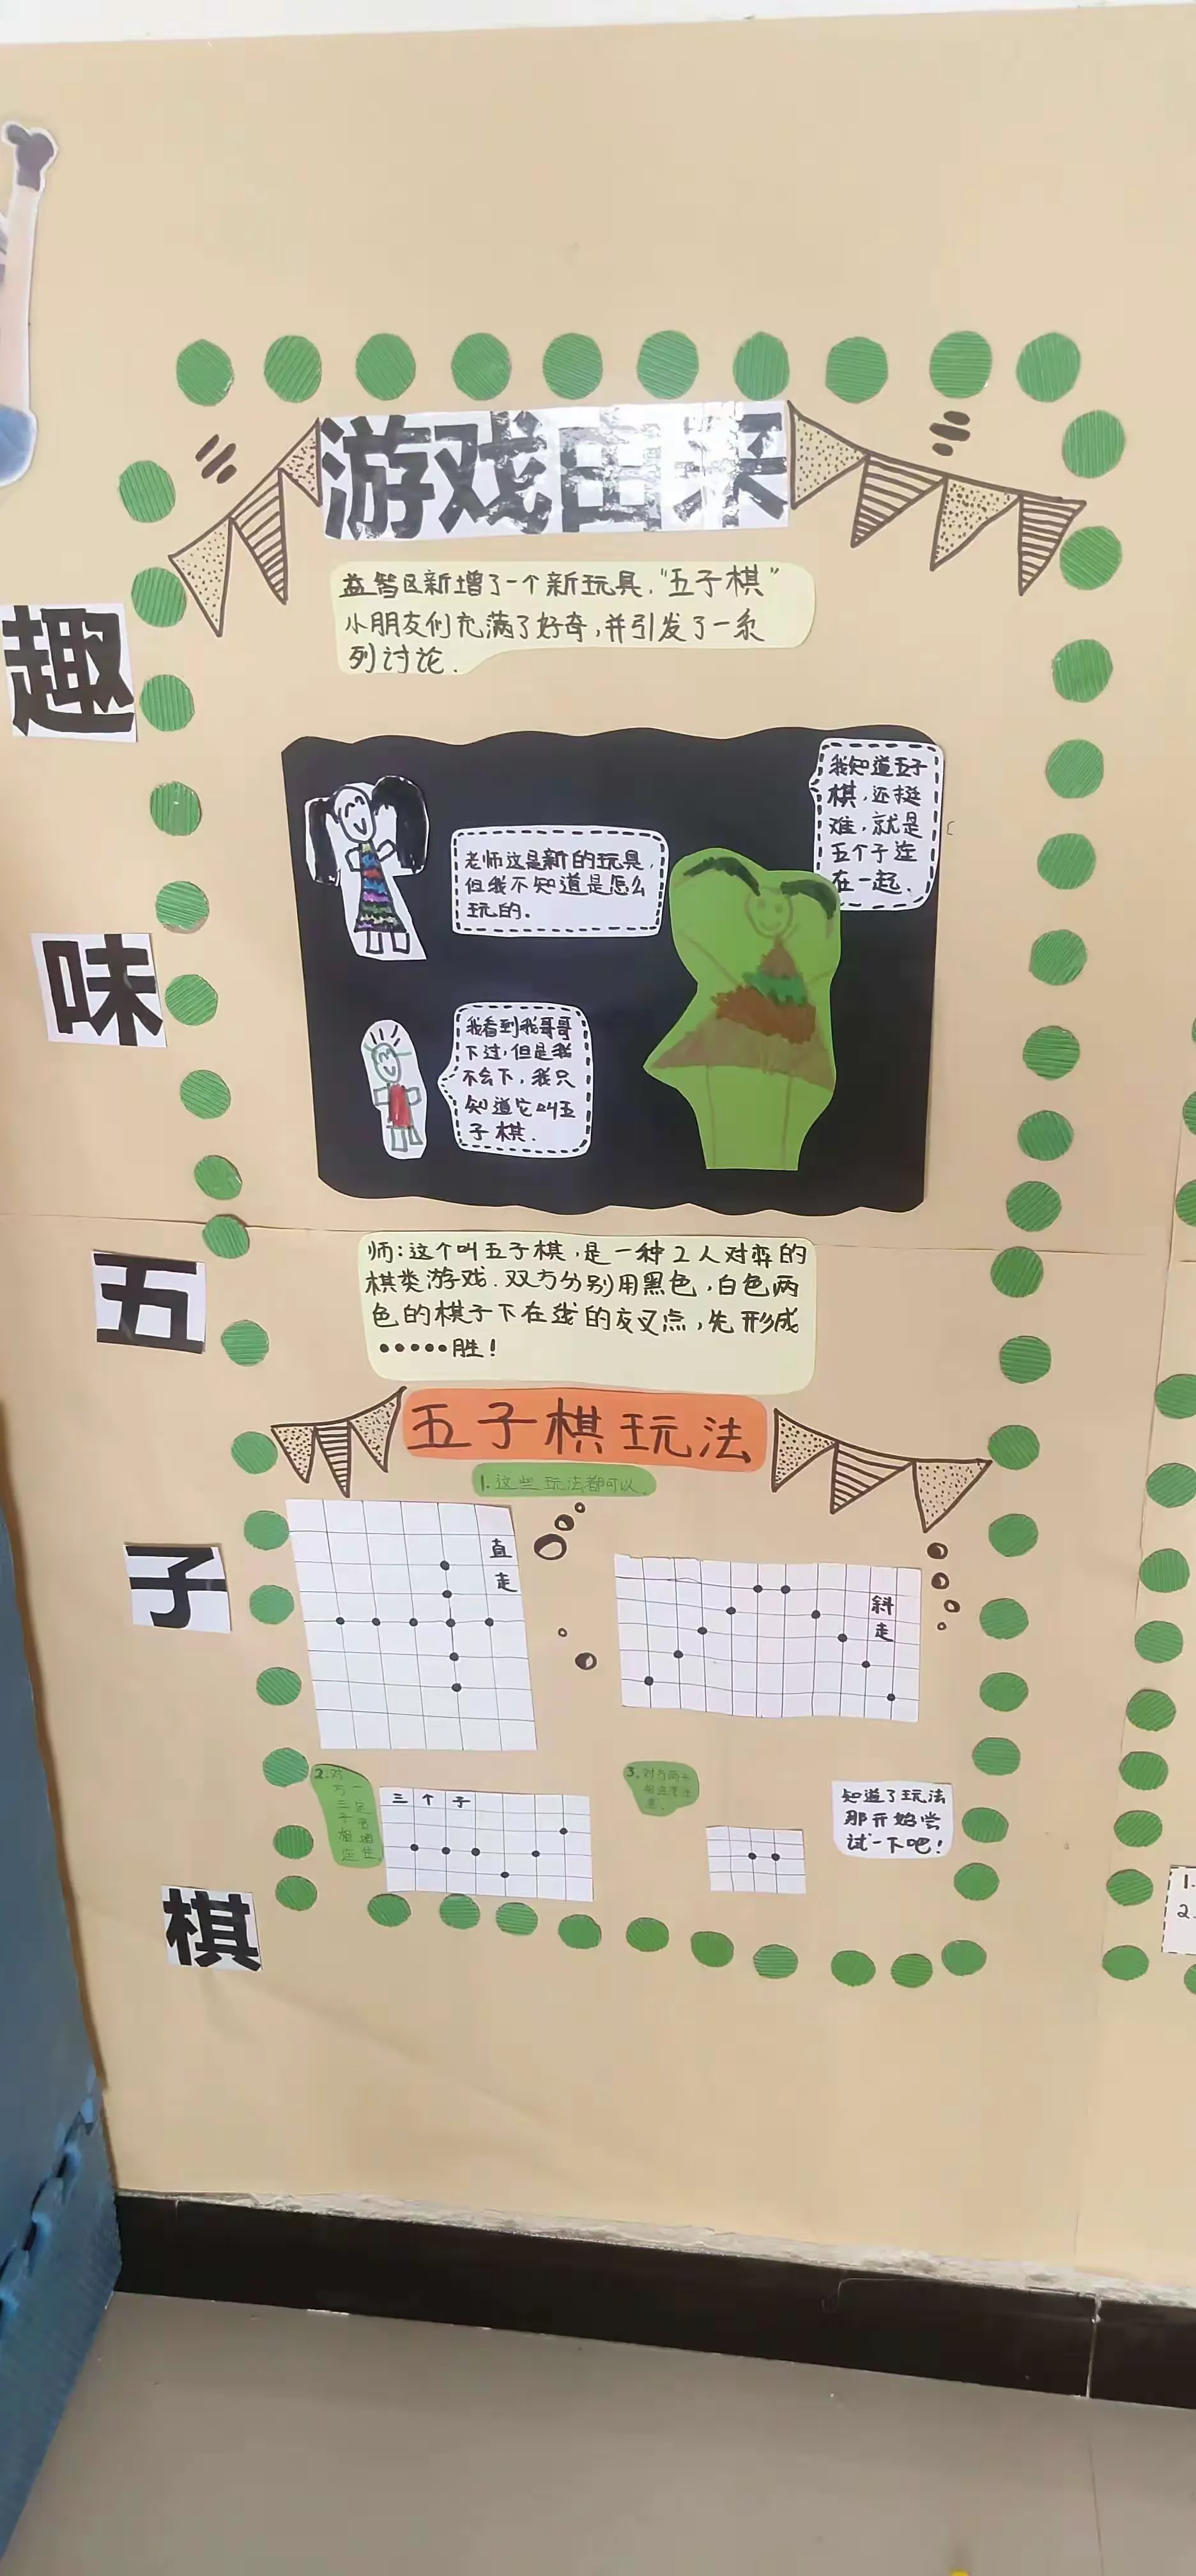 趣味五子棋
游戏由来
益智区新增了一个新玩具,“五子棋”
小朋友们充满了好奇,并引发了一系
列讨论.
老师这是新的玩具,
但我不知道是怎么
玩的.
我知道五子
棋,还挺
难,就是
五个子连
在一起.
我看到我哥哥
下过,但是我
不会下,我只
知道它叫五
子棋.
师:这个叫五子棋,是一种2人对弈的
棋类游戏.双方分别用黑色,白色两
色的棋子下在线的交叉点,先形成
●●●●●胜!
五子棋玩法
1.这些玩法都可以.
直
走
斜
走
2.对方三子相连
一定要堵住
三个子
3.对方两子
相连要注
意.
知道了玩法
那开始尝
试一下吧!
1.
2.